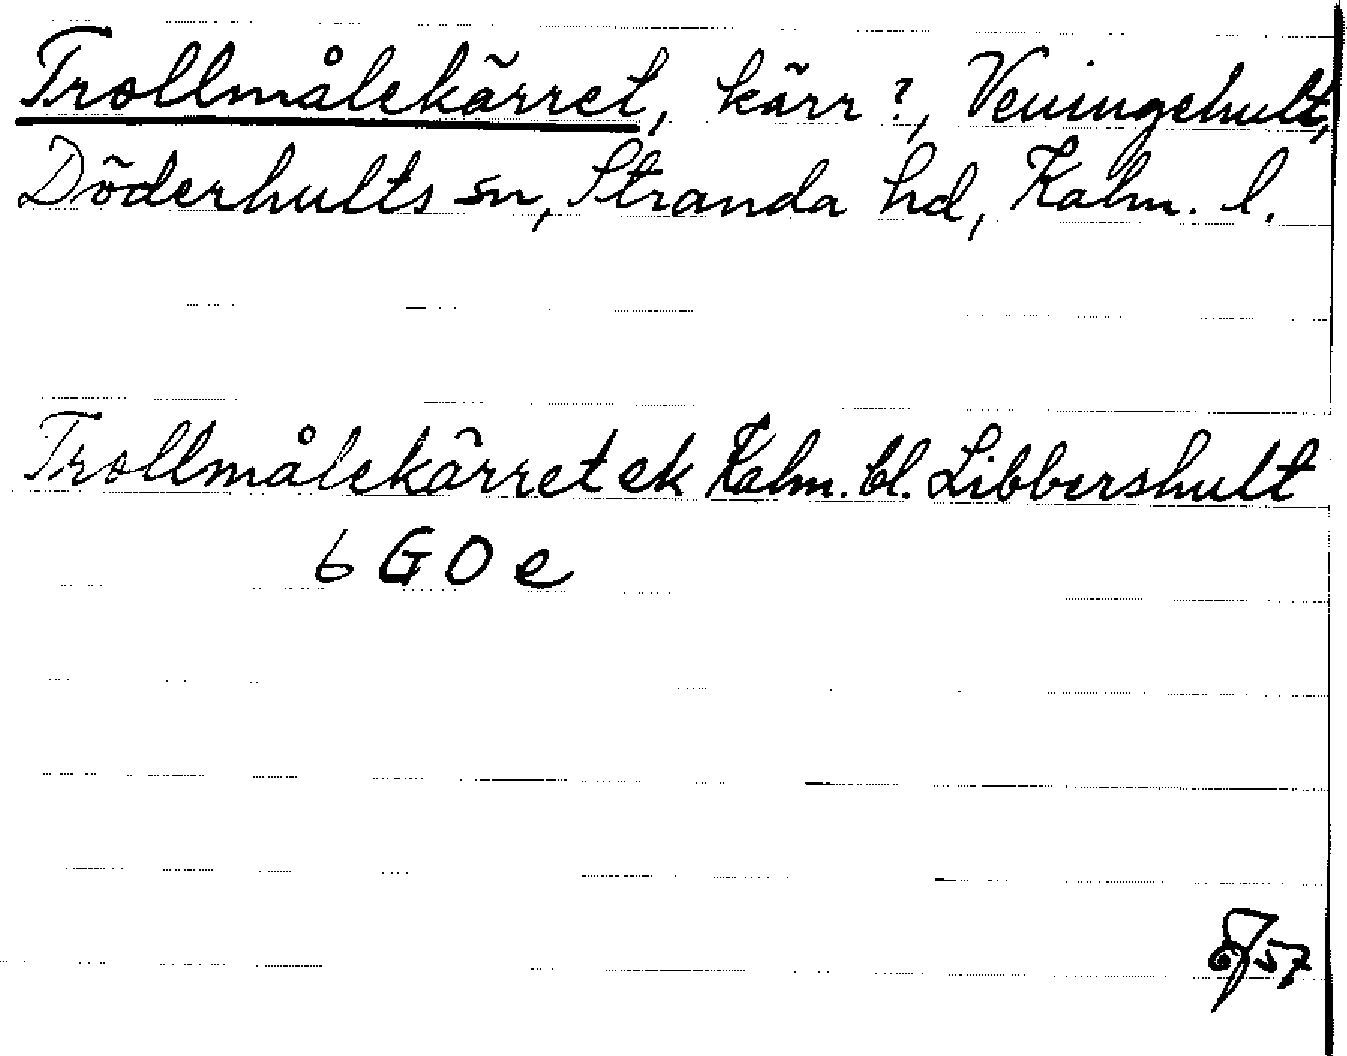 Trollmålekärret, kärr?, Veningehult,
Döderhults sn, Stranda hd, Kalm. l.
Trollmålekärret ek Kalm. bl. Libbershult
6 G O e
57